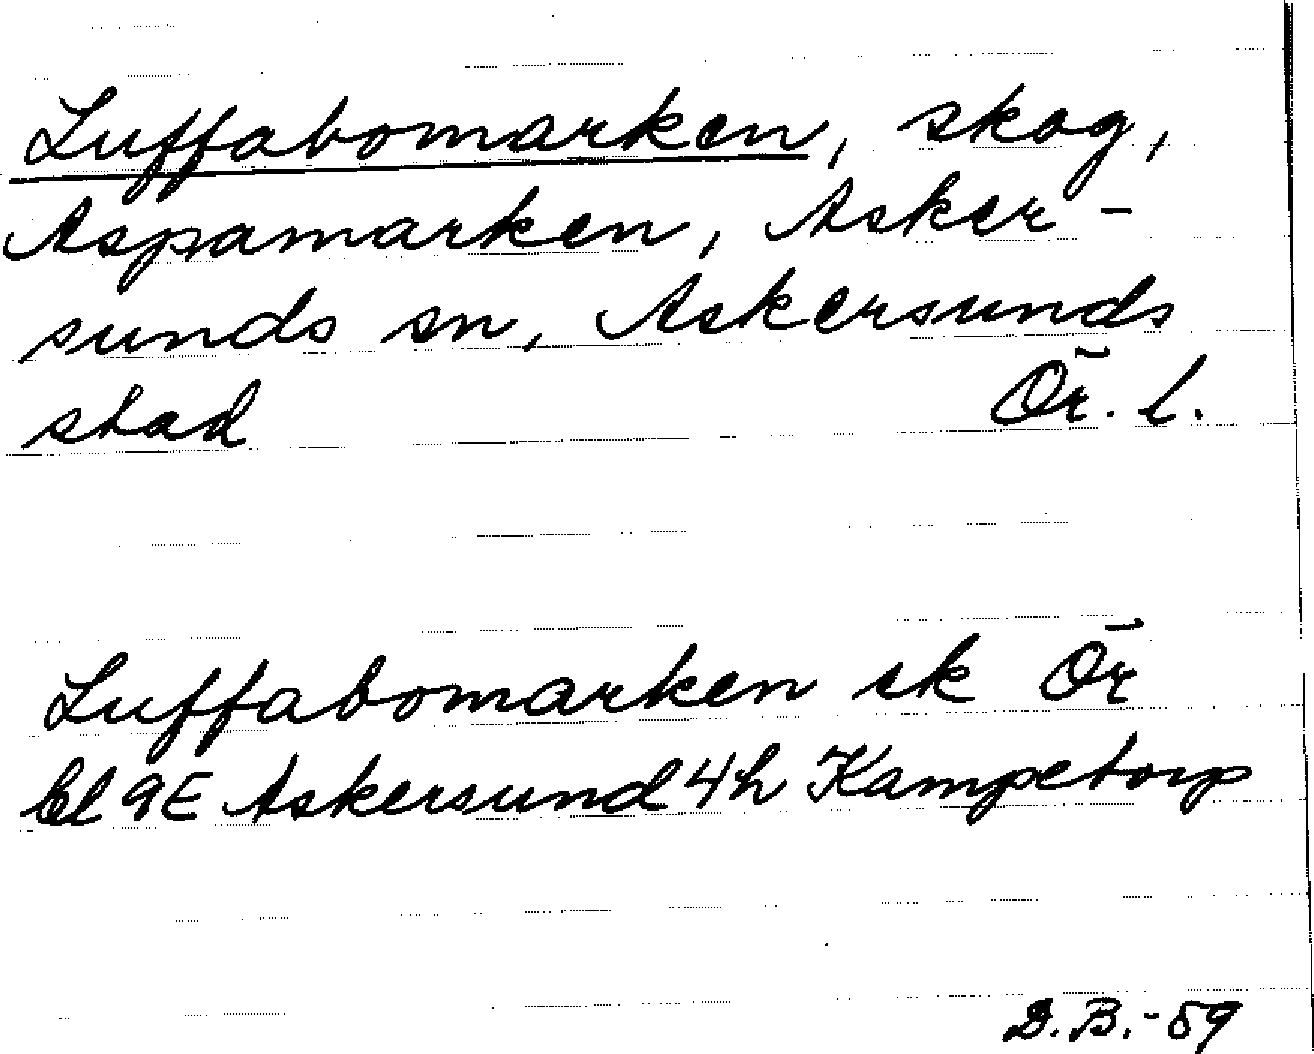 Luffabomarken, skog,
Aspamarken, Asker-
sunds sn, Askersunds
stad Ör. l.
Luffabomarken sk Ör
bl 9E Askersund 4h Kampetorp
D.B.-59